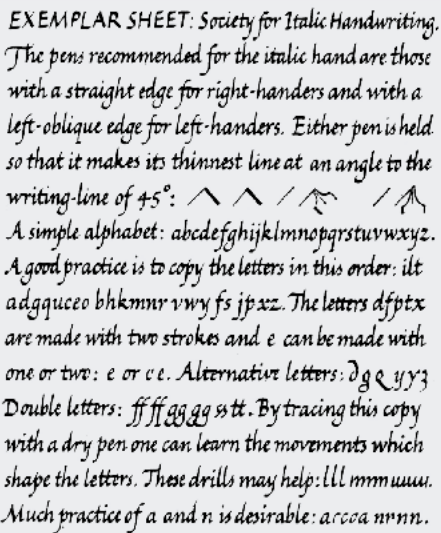 EXEMPLAR SHEET: Society for Italic Handwriting.
The pens recommended for the italic hand are those
with a straight edge for right-handers and with a
left-oblique edge for left-handers. Either pen is held
so that it makes its thinnest line at an angle to the
writing-line of 45°:
A simple alphabet: abcdefghijklmnopqrstuvwxyz.
A good practice is to copy the letters in this order: ilt
adgquceo bhkmnr vwy fs jpxz. The letters dfptx
are made with two strokes and e can be made with
one or two: e or c e. Alternative letters: ∂ g Q y y ʒ
Double letters: ff ff gg gg ss tt. By tracing this copy
with a dry pen one can learn the movements which
shape the letters. These drills may help: lll mmm uuuu.
Much practice of a and n is desirable: arcca nrnn.